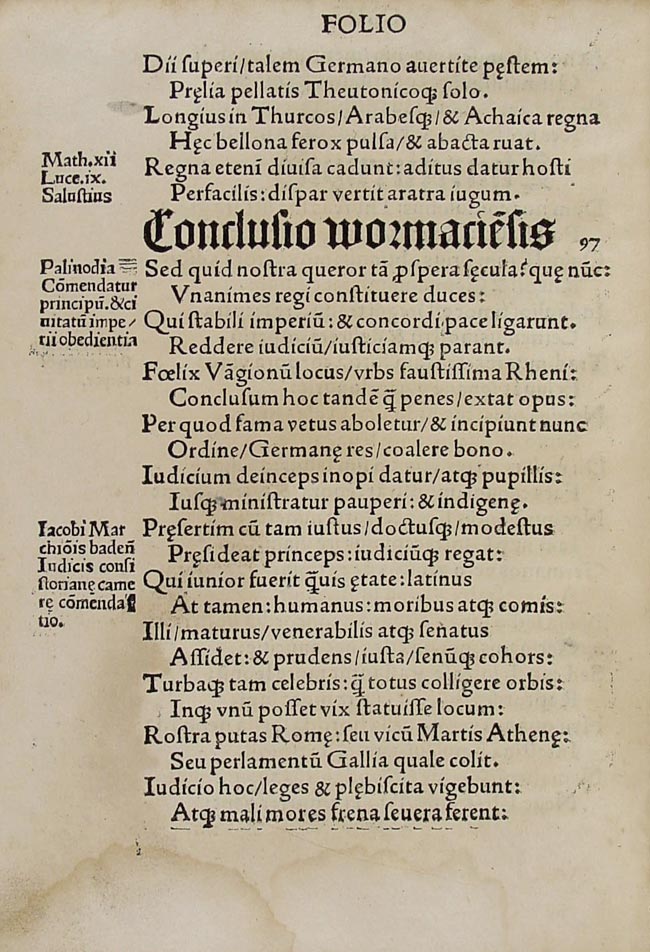 FOLIO
Dii superi/talem Germano auertite pęstem:
Pręlia pellatis Theutonicoqꝫ solo.
Longius in Thurcos/Arabesqꝫ/& Achaica regna
Hęc bellona ferox pulsa/& abacta ruat.
Math.xii
Luce.ix.
Salustius
Regna etenī diuisa cadunt:aditus datur hosti
Perfacilis:dispar vertit aratra iugum.
Conclusio wormaciēsis 97
Palinodia
Cōmendatur
principū.&ci
uitatū impe/
rii obedientia
Sed quid nostra queror tā ꝓspera sęcula?quę nūc:
Vnanimes regi constituere duces:
Qui stabili imperiū:& concordi pace ligarunt.
Reddere iudiciū/iusticiamqꝫ parant.
Fœlix Vāgionū locus/vrbs faustissima Rheni:
Conclusum hoc tandē q̄ penes/extat opus:
Per quod fama vetus aboletur/& incipiunt nunc
Ordine/Germanę res/coalere bono.
Iudicium deinceps inopi datur/atqꝫ pupillis:
Iusqꝫ ministratur pauperi:& indigenę.
Iacobi Mar
chiōis badeń
Iudicis consi
storianę came
rę cōmenda
tio.
Pręsertim cū tam iustus/doctusqꝫ/modestus
Pręsideat princeps:iudiciūqꝫ regat:
Qui iunior fuerit q̄uis ętate:latinus
At tamen:humanus:moribus atqꝫ comis:
Illi/maturus/venerabilis atqꝫ senatus
Assidet:& prudens/iusta/senūqꝫ cohors:
Turbaqꝫ tam celebris:q̄ totus colligere orbis:
Inqꝫ vnū posset vix statuisse locum:
Rostra putas Romę:seu vicū Martis Athenę:
Seu perlamentū Gallia quale colit.
Iudicio hoc/leges & plębiscita vigebunt:
Atqꝫ mali mores frena seuera ferent: